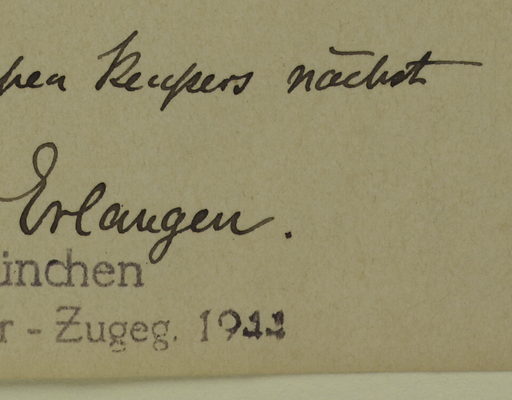 Keupers nächst
Erlangen.
ünchen
r - Zugeg. 19